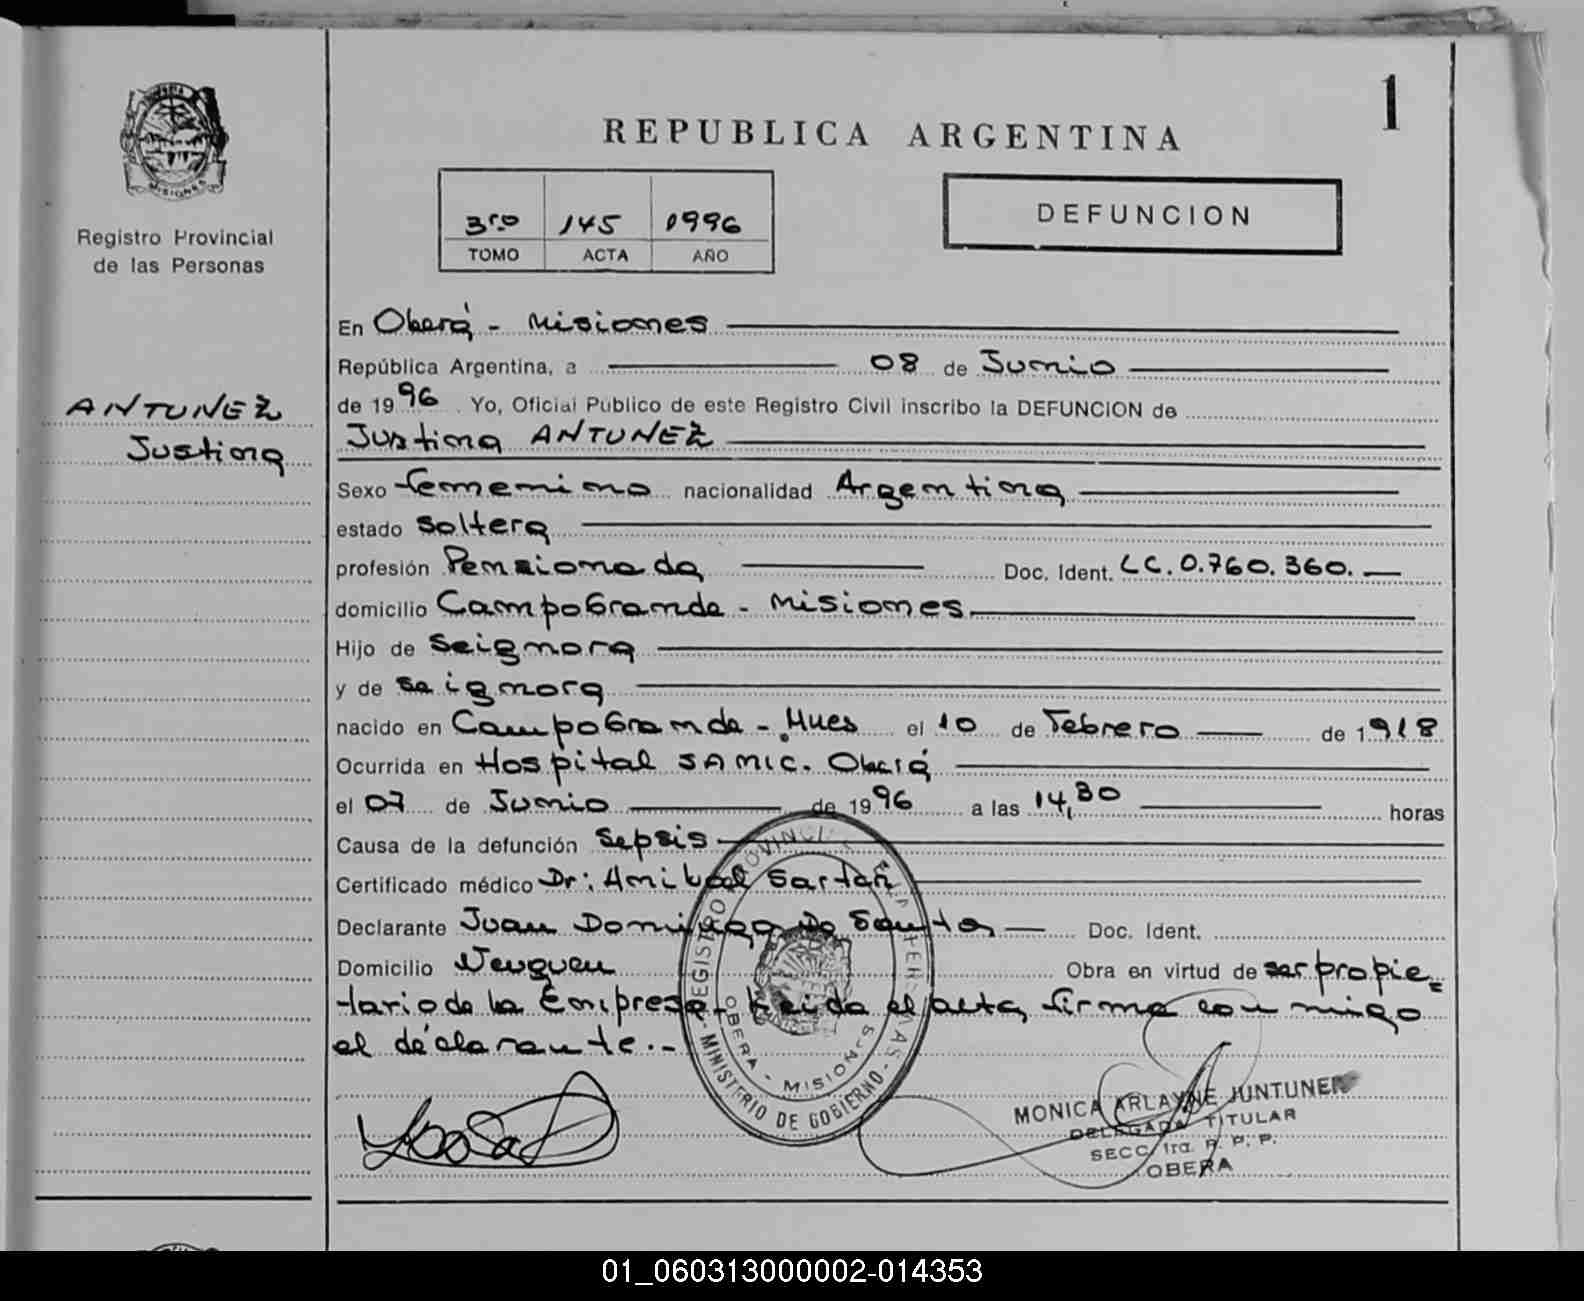 1
REPUBLICA ARGENTINA
MISIONES
Registro Provincial
de las Personas
3ro 145 1996
TOMO ACTA AÑO
DEFUNCION
En Oberá - Misiones
República Argentina, a 08 de Junio
ANTUNEZ
Justina
de 1996. Yo, Oficial Público de este Registro Civil inscribo la DEFUNCION de
Justina ANTUNEZ
Sexo femenino nacionalidad Argentina
estado soltera
profesión Pensionada Doc. Ident. LC. 0.760.360.
domicilio Campo Grande - Misiones
Hijo de seignora
y de seignora
nacido en Campo Grande - Mnes el 10 de Febrero de 1918
Ocurrida en Hospital SAMIC. Oberá
el 07 de Junio de 1996 a las 14,30 horas
Causa de la defunción Sepsis
Certificado médico Dr: Anibal Sartori
Declarante Juan Domingo Do Santos Doc. Ident.
Domicilio Neuquen Obra en virtud de ser propie=
tario de la Empresa. Leida el acta, firma con migo
el déclarante.-
REGISTRO PROVINCIAL DE LAS PERSONAS
- MINISTERIO DE GOBIERNO -
OBERA - MISIONES
MONICA ARLAYNE JUNTUNEN
DELEGADA TITULAR
SECC. 1ra. R. P. P.
OBERA
01_060313000002-014353